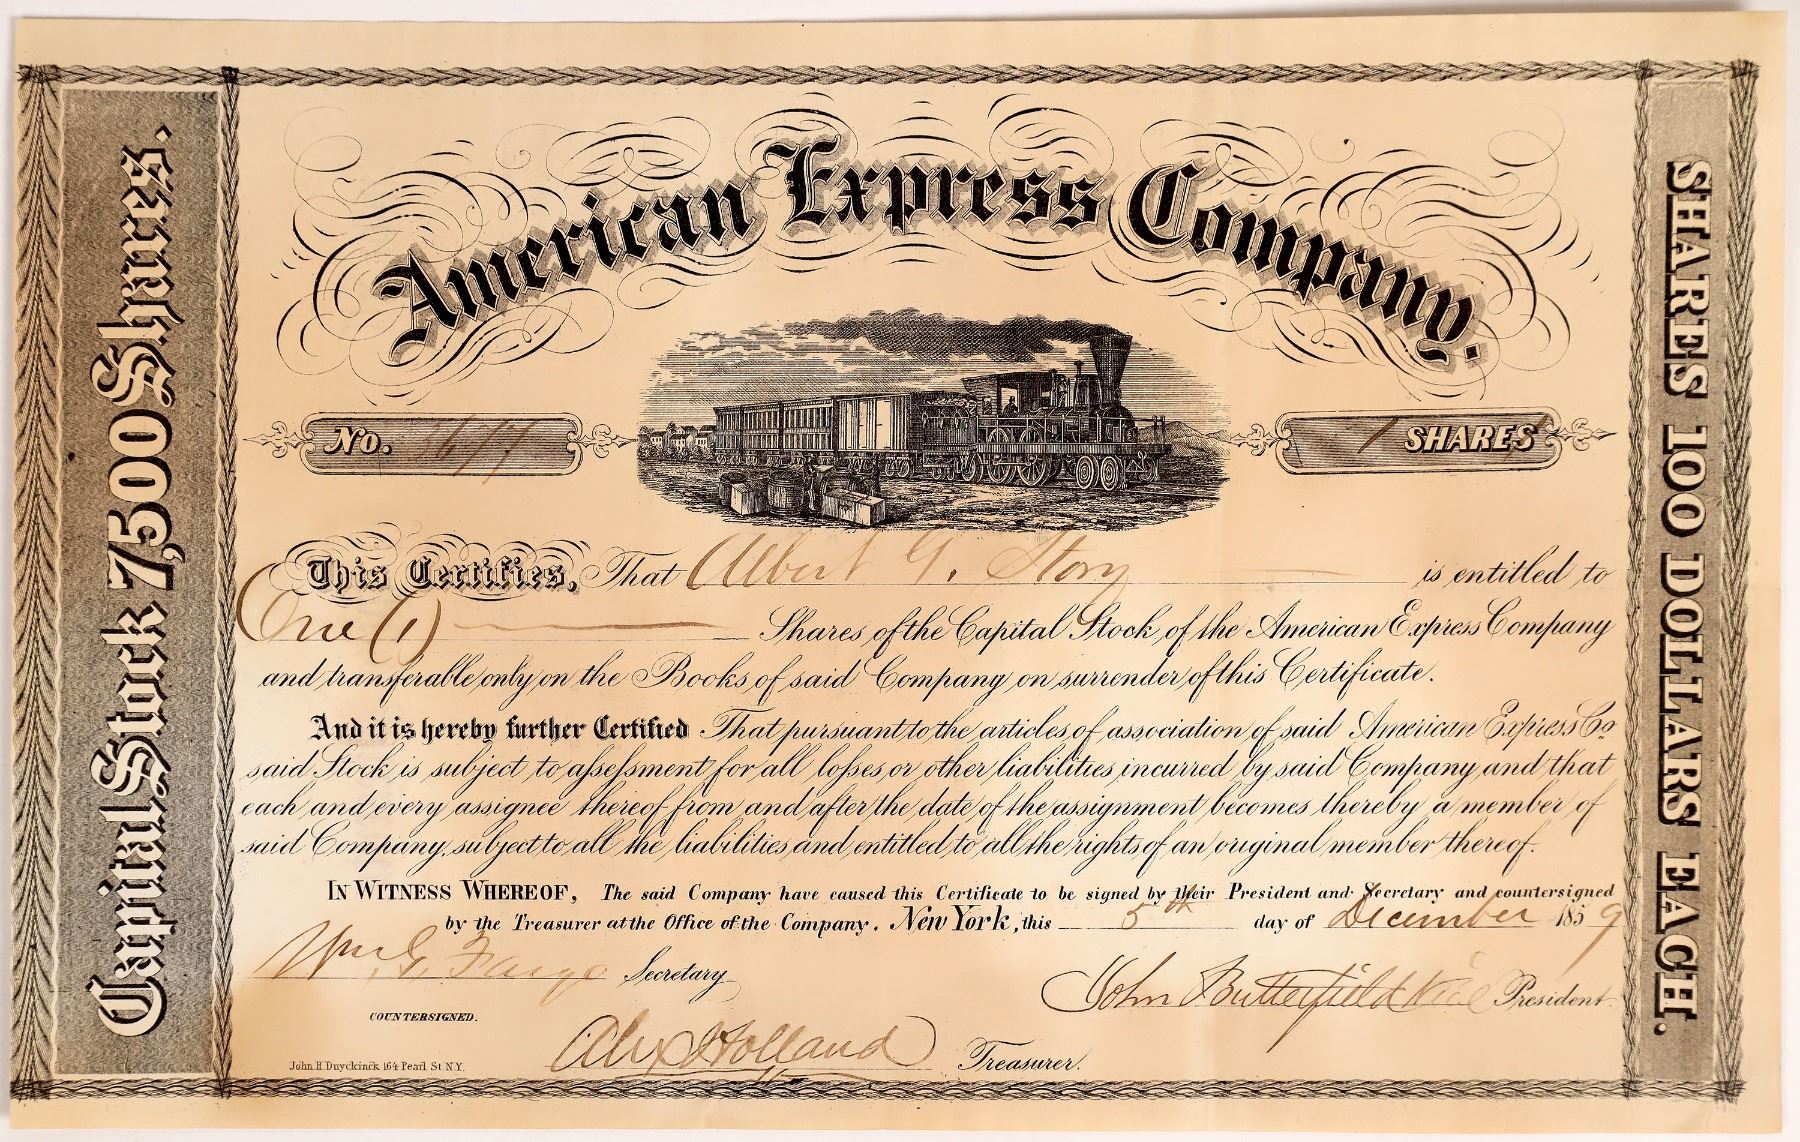 American Express Company.
Capital Stock 7,500 Shares.
SHARES 100 DOLLARS EACH.
No. 3677
1 SHARES
This Certifies, That Albert G. Story is entitled to
One (1) Shares of the Capital Stock of the American Express Company
and transferable only on the Books of said Company on surrender of this Certificate.
And it is hereby further Certified That pursuant to the articles of association of said American Express Co.
said Stock is subject to assessment for all losses or other liabilities incurred by said Company and that
each and every assignee thereof from and after the date of the assignment becomes thereby a member of
said Company, subject to all the liabilities and entitled to all the rights of an original member thereof.
IN WITNESS WHEREOF, The said Company have caused this Certificate to be signed by their President and Secretary and countersigned
by the Treasurer at the Office of the Company. New York, this 5th day of December 1859
Wm. G. Fargo Secretary
John Butterfield Vice President
COUNTERSIGNED.
Alex Holland Treasurer.
John H Duyckinck 164 Pearl St N.Y.